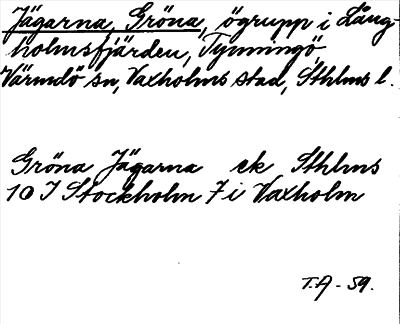 Jägarna, Gröna, ögrupp i Lång-
holmsfjärden, Tynningö,
Värmdö sn, Vaxholms stad, Sthlms l.
Gröna Jägarna ek Sthlms
10 I Stockholm 7 i Vaxholm
T.A - 59.